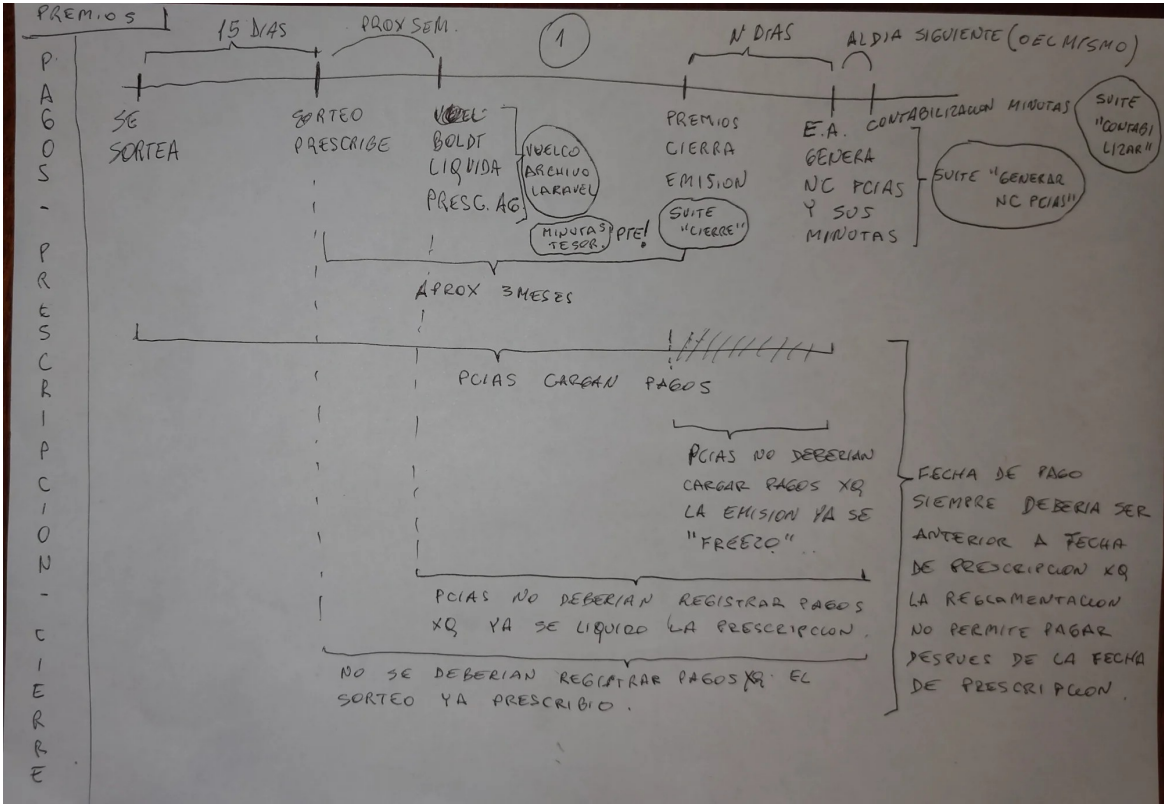 PREMIOS
PAGOS - PRESCRIPCION - CIERRE
15 DIAS
PROX SEM.
1
N DIAS
AL DIA SIGUIENTE (O EL MISMO)
SE
SORTEA
SORTEO
PRESCRIBE
BOLDT
LIQUIDA
PRESC. AG
VUELCO
ARCHIVO
LARAVEL
MINUTAS
TESOR.
PTE!
PREMIOS
CIERRA
EMISION
SUITE
"CIERRE"
E.A.
GENERA
NC PCIAS
Y SUS
MINUTAS
SUITE "GENERAR
NC PCIAS"
CONTABILIZACION MINUTAS
SUITE
"CONTABI
LIZAR"
APROX 3 MESES
PCIAS CARGAN PAGOS
PCIAS NO DEBERIAN
CARGAR PAGOS XQ
LA EMISION YA SE
"FREEZO"..
PCIAS NO DEBERIAN REGISTRAR PAGOS
XQ YA SE LIQUIDO LA PRESCRIPCION.
NO SE DEBERIAN REGISTRAR PAGOS XQ EL
SORTEO YA PRESCRIBIO.
FECHA DE PAGO
SIEMPRE DEBERIA SER
ANTERIOR A FECHA
DE PRESCRIPCION XQ
LA REGLAMENTACION
NO PERMITE PAGAR
DESPUES DE LA FECHA
DE PRESCRIPCION.